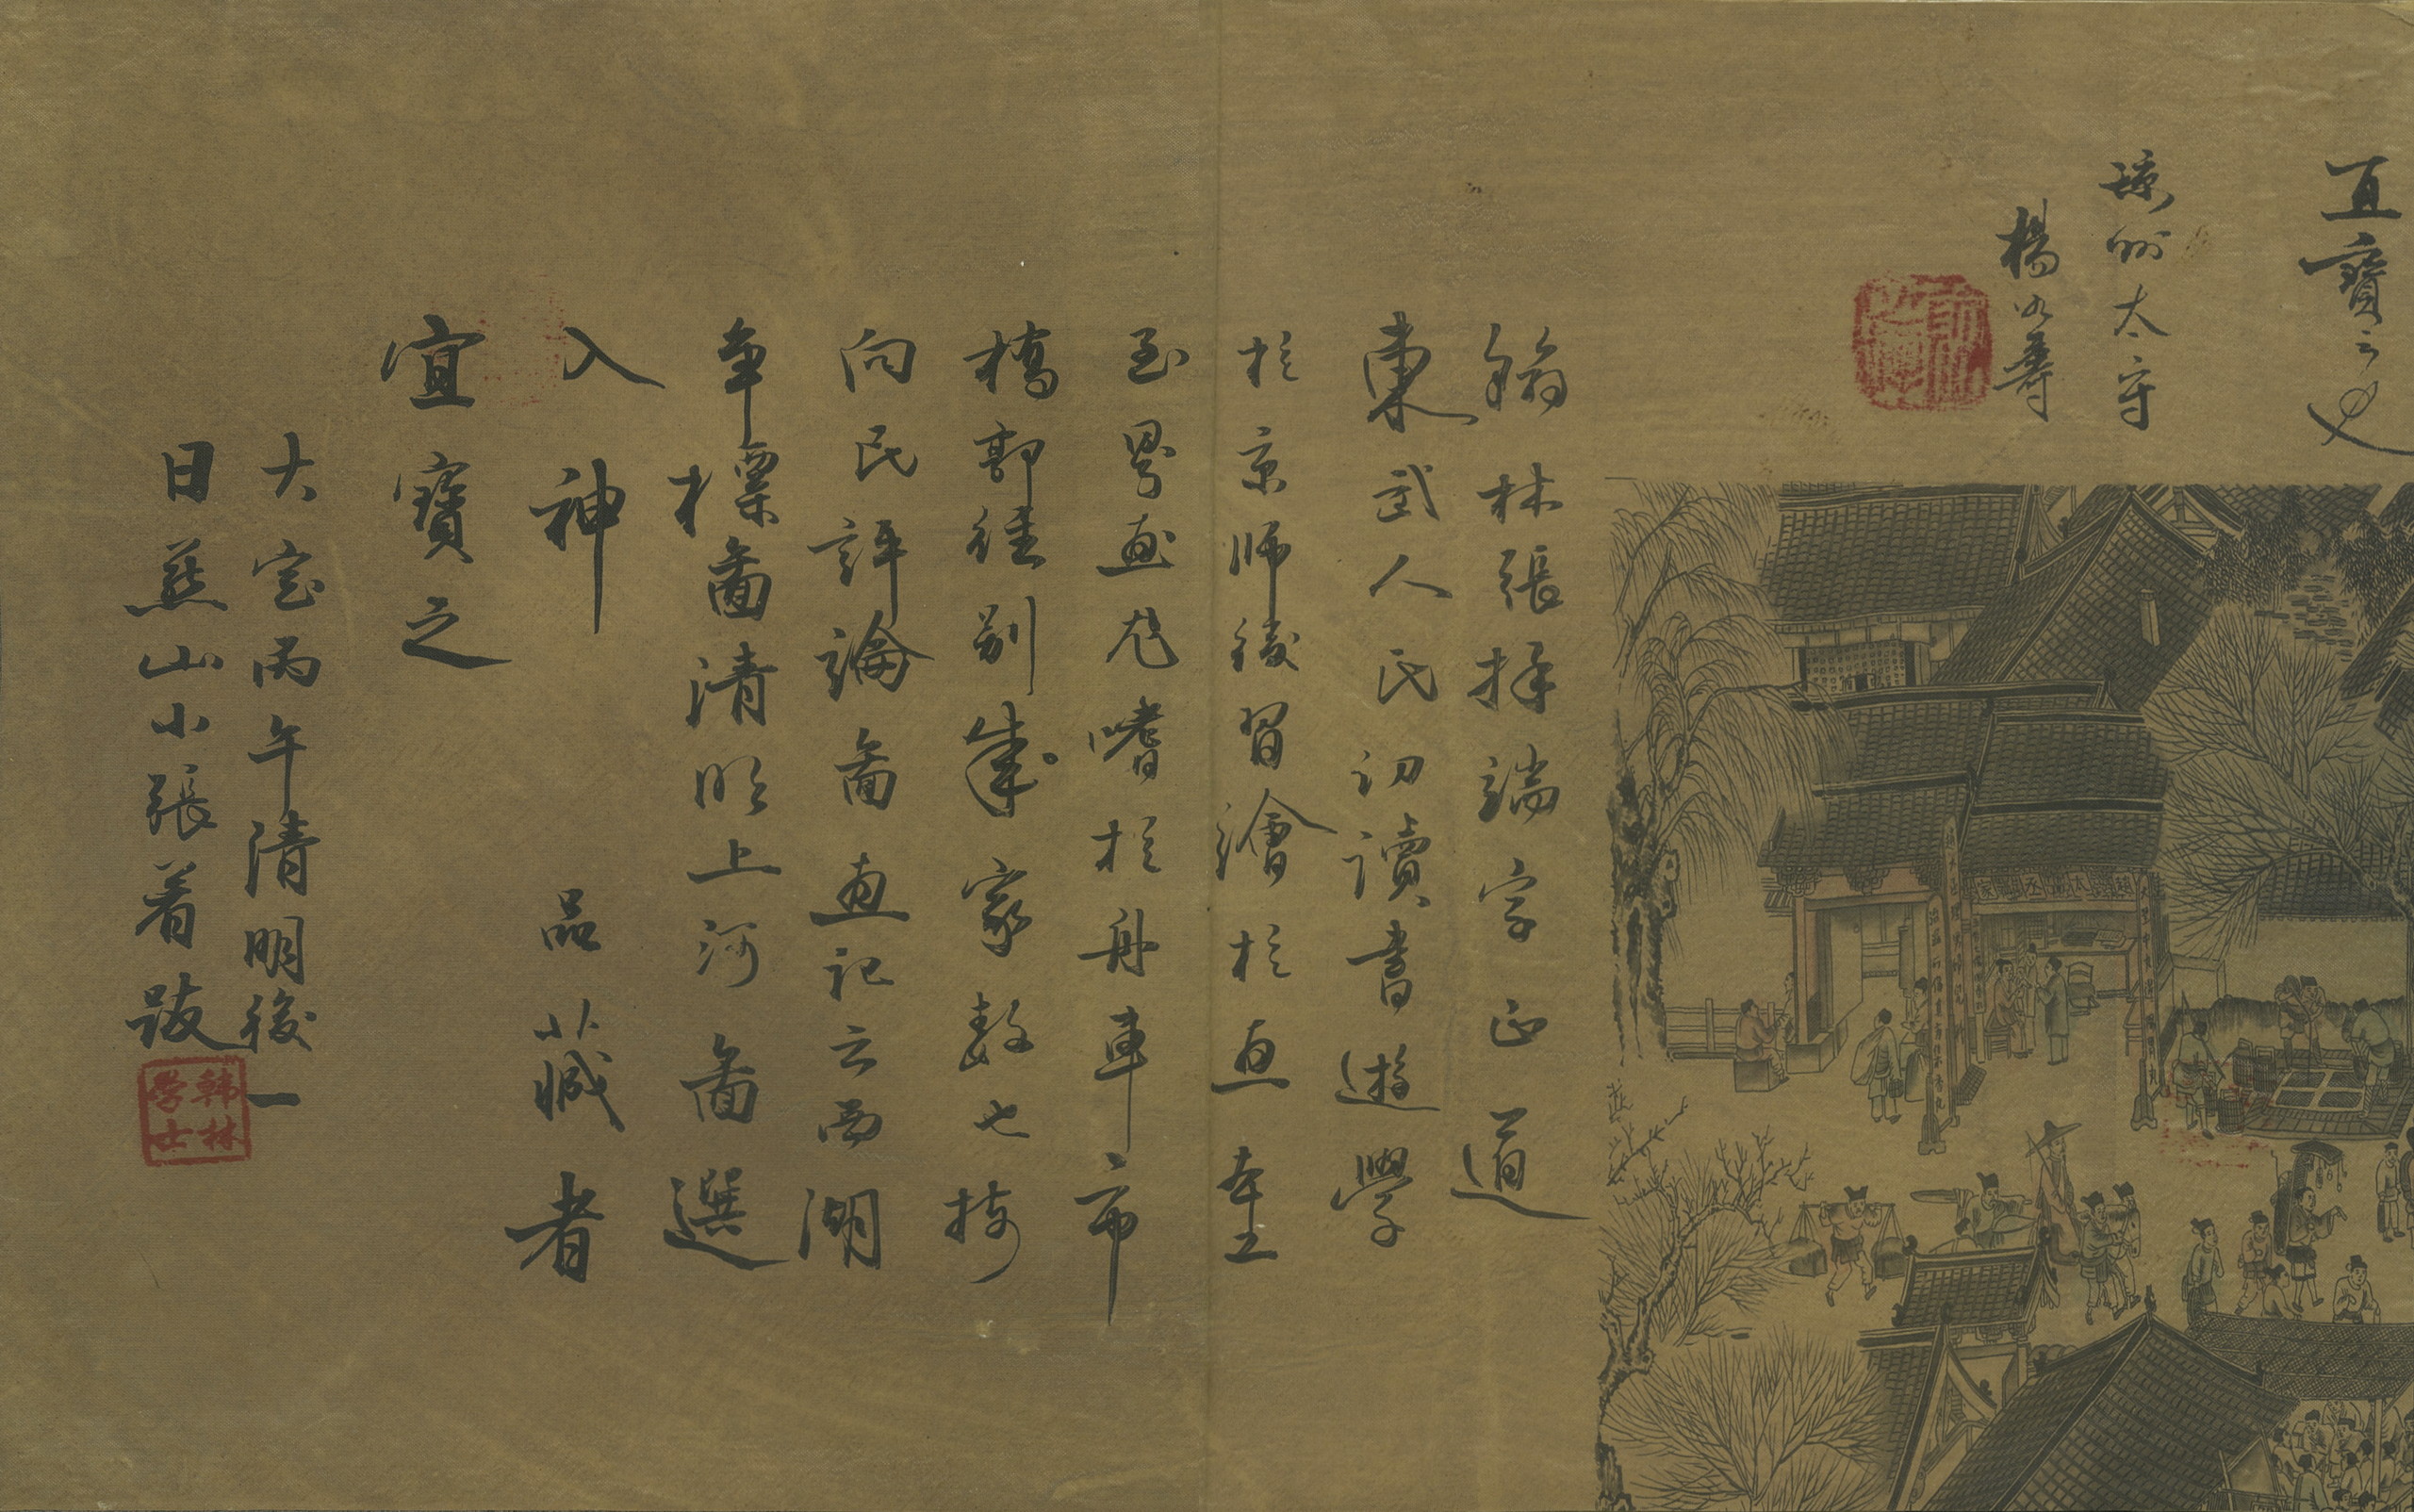 宜寶之也
瓊州太守
楊必壽
翰林張擇端字正道
東武人氏初讀書遊學
於京師後習繪於畫本工
至界畫尤嗜於舟車市
橋郭徑別成家數也按
向氏評論畵畫記云西湖
争標啚清明上河啚選
入神　品藏者
宜寶之
大定丙午清明後一
日燕山小張着跋
翰林
學士
趙太丞家